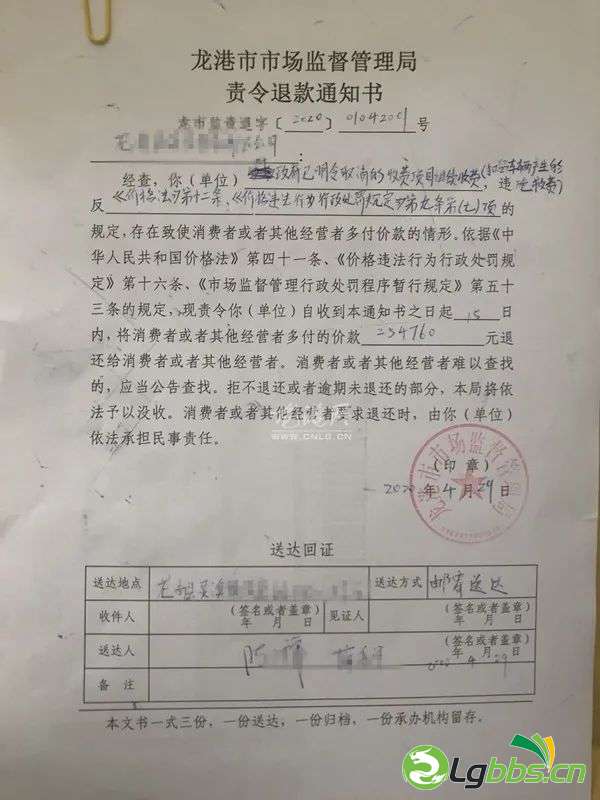 龙港市市场监督管理局
责令退款通知书
龙市监责退字〔2020〕01042001号
龙 公司：
经查，你（单位）政府已明令取消的收费项目继续收费，(和
违
反《价格法》第十二条、《价格违法行为行政处罚规定》第九条第(七)项的
规定，存在致使消费者或者其他经营者多付价款的情形。依据《中
华人民共和国价格法》第四十一条、《价格违法行为行政处罚规
定》第十六条、《市场监督管理行政处罚程序暂行规定》第五十
三条的规定，现责令你（单位）自收到本通知书之日起15日
内，将消费者或者其他经营者多付的价款234760元退
还给消费者或者其他经营者。消费者或者其他经营者难以查找
的，应当公告查找。拒不退还或者逾期未退还的部分，本局将依
法予以没收。消费者或者其他经营者要求退还时，由你（单位）
依法承担民事责任。
龙港虎
WWW.CNLG.CN
龙港市市场监督管理局
（印章）
2020年4月29日
送达回证
送达地点 龙港 送达方式 邮寄送达
收件人 （签名或者盖章） 年 月 日 见证人 （签名或者盖章） 年 月 日
送达人 陈 （签名或者盖章） 2020年4月29日
备 注
本文书一式三份，一份送达，一份归档，一份承办机构留存。
Lgbbs.cn